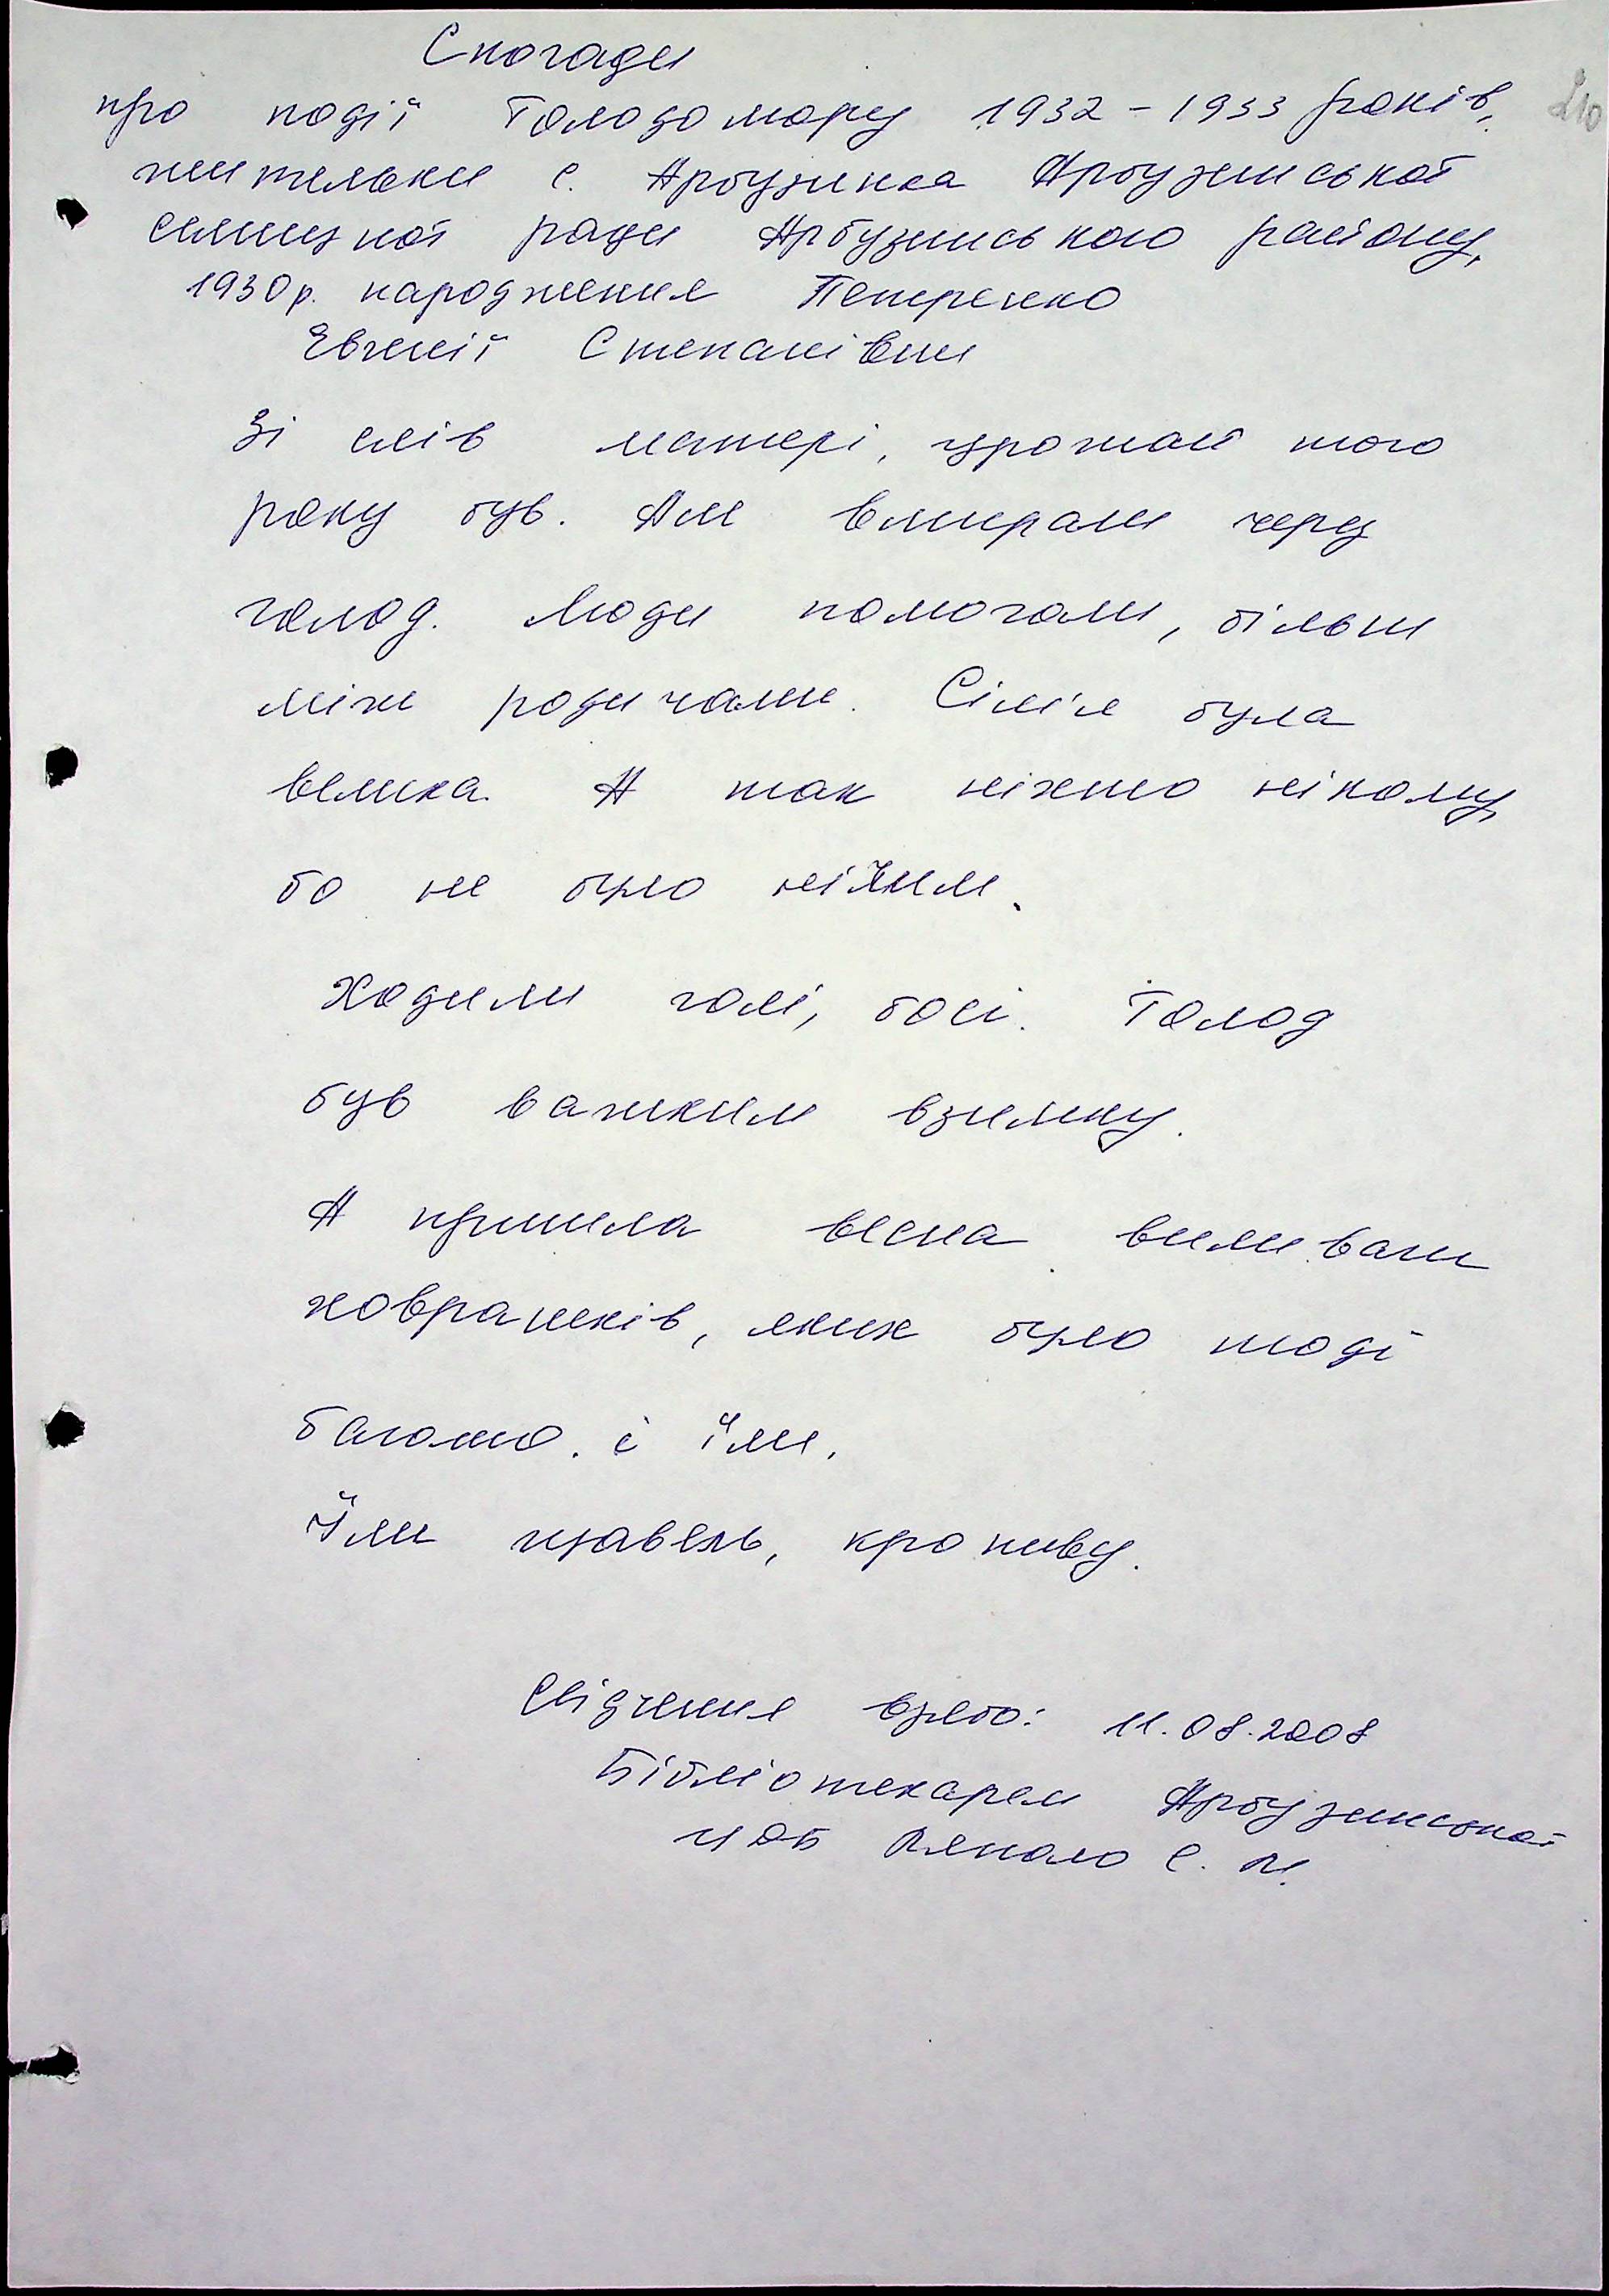 Спогади
про події Голодомору 1932 - 1933 років,
210
жительки с. Арбузинка Арбузинської
селищної ради Арбузинського району,
1930р. народження Петренко
Євгенії Степанівни
Зі слів матері, урожай того
року був. Але вмирали через
голод. Люди помогали, більш
між родичами. Сім'я була
велика. А так ніхто нікому,
бо не було нічим.
Ходили голі, босі. Голод
був важким взимку.
А прийшла весна виливали
ховрашків, яких було тоді
багато. і їли.
Їли щавель, кропиву.
Свідчення взято: 11.08.2008
Бібліотекарем Арбузинської
ЦДБ С.